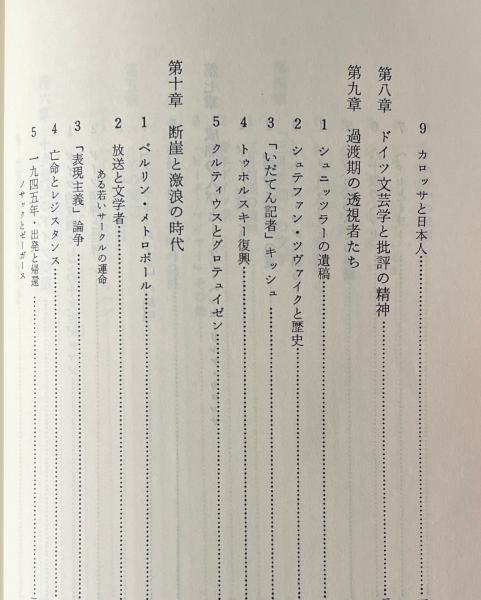 9 カロッサと日本人
第八章 ドイツ文芸学と批評の精神
第九章 過渡期の透視者たち
1 シュニッツラーの遺稿
2 シュテファン・ツヴァイクと歴史
3 「いだてん記者」キッシュ
4 トゥホルスキー復興
5 クルティウスとグロテュイゼン
第十章 断崖と激浪の時代
1 ベルリン・メトロポール
2 放送と文学者
ある若いサークルの運命
3 「表現主義」論争
4 亡命とレジスタンス
5 一九四五年・出発と帰還
ノサックとゼーガース